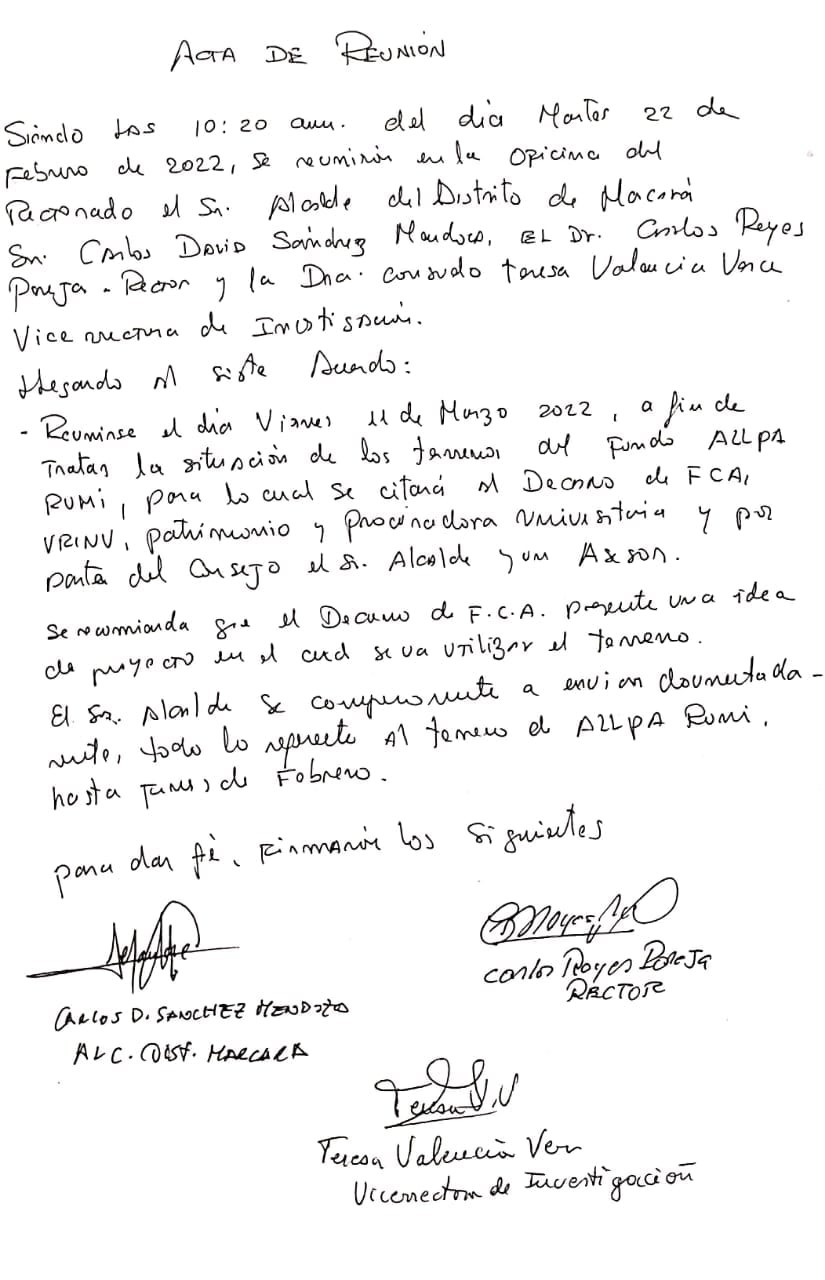 ACTA DE REUNIÓN
Siendo las 10:20 am. del día Martes 22 de
Febrero de 2022, se reunieron en la oficina del
Rectorado el Sr. Alcalde del Distrito de Marcará
Sr. Carlos David Sánchez Mendoza, EL Dr. Carlos Reyes
Pareja - Rector y la Dra. Consuelo Teresa Valencia Vera
Vicerrectora de Investigación.
Llegando al siguiente Acuerdo:
- Reunirse el día Viernes 11 de Marzo 2022, a fin de
Tratar la situación de los terrenos del Fundo ALLPA
RUMI, para lo cual se citará al Decano de FCA,
VRINV, patrimonio y Procuradora Universitaria y por
parte del Consejo el Sr. Alcalde y un Asesor.
Se recomienda que el Decano de F.C.A. presente una idea
de proyecto en el cual se va utilizar el terreno.
El Sr. Alcalde se compromete a enviar documentada-
mente, todo lo referente al terreno el ALLPA Rumi,
hasta de Febrero.
para dar fé, firmarón los siguientes
CARLOS D. SANCHEZ MENDOZA
ALC. DIST. MARCARA
Carlos Reyes Pareja
RECTOR
Teresa V.V
Teresa Valencia Vera
Vicerrectora de Investigación